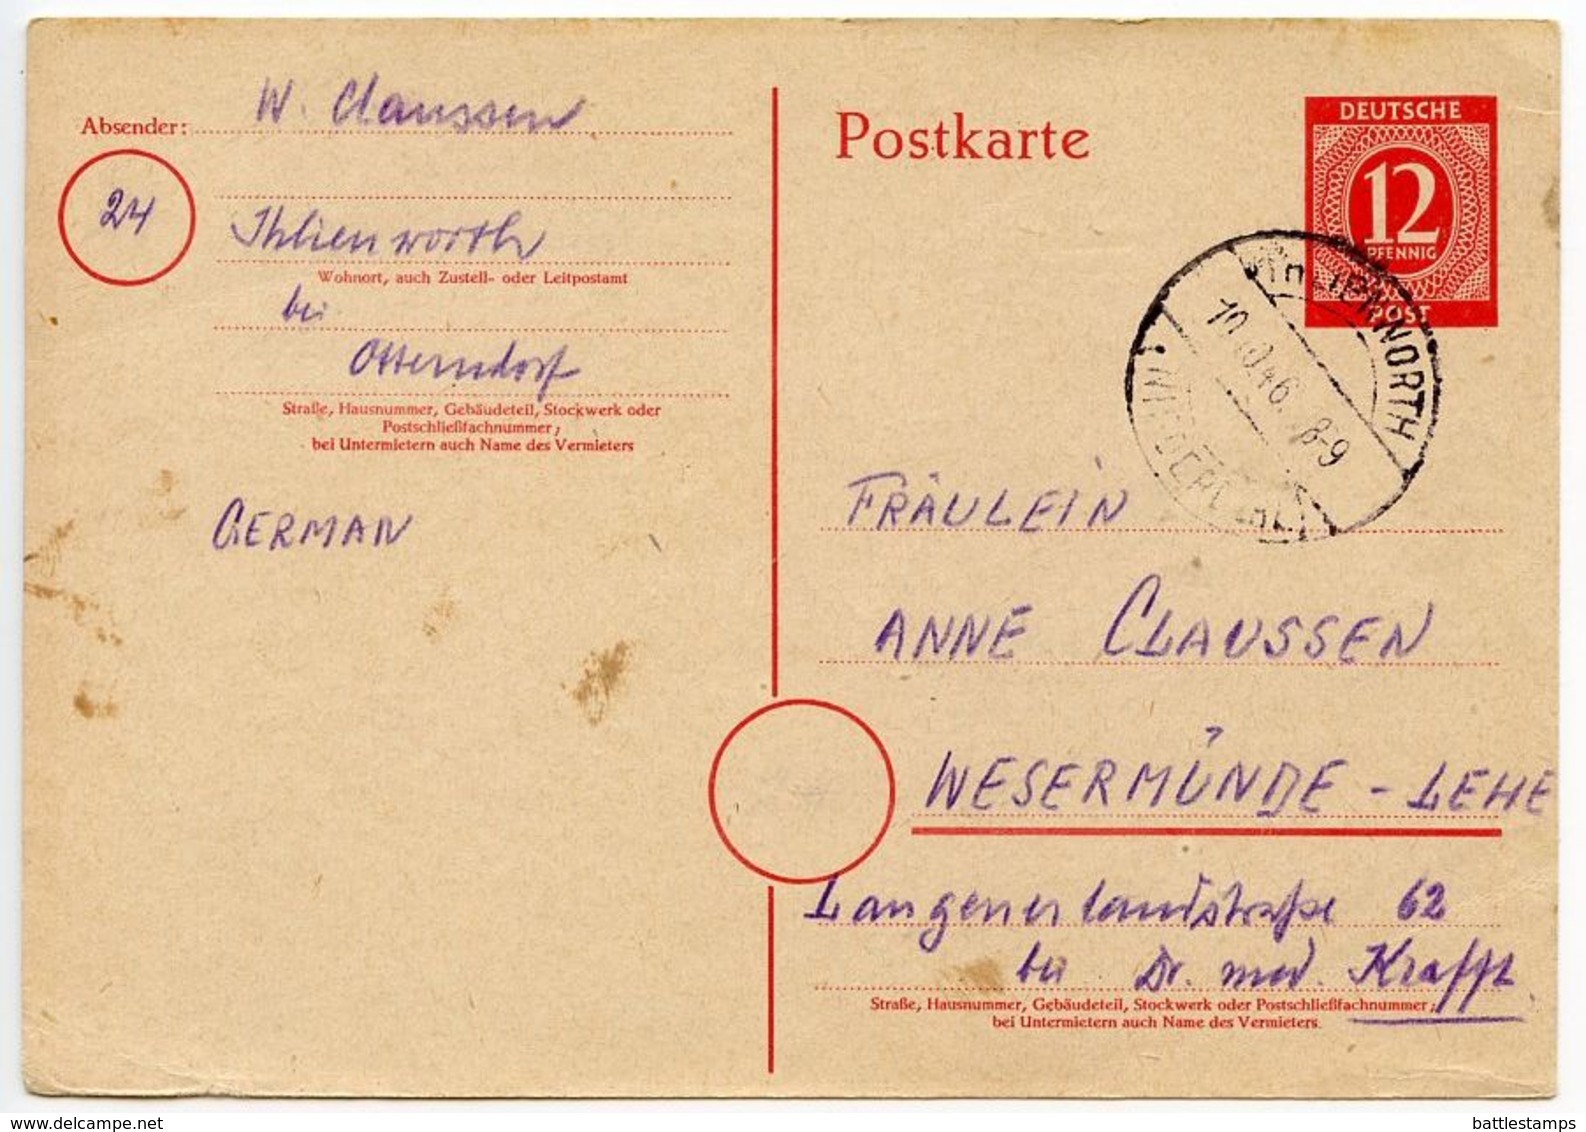 Absender: W. Claussen
24
Ihlienworth
Wohnort, auch Zustell- oder Leitpostamt
bei
Otterndorf
Straße, Hausnummer, Gebäudeteil, Stockwerk oder
Postschließfachnummer;
bei Untermietern auch Name des Vermieters
GERMAN
Postkarte
DEUTSCHE
12
PFENNIG
POST
IHLIENWORTH
46. 8-9
(NIEDERELBE)
FRÄULEIN
ANNE CLAUSSEN
WESERMÜNDE - LEHE
Langenerlandstraße 62
bei Dr. med. Krafft
Straße, Hausnummer, Gebäudeteil, Stockwerk oder Postschließfachnummer;
bei Untermietern auch Name des Vermieters
battlestamps